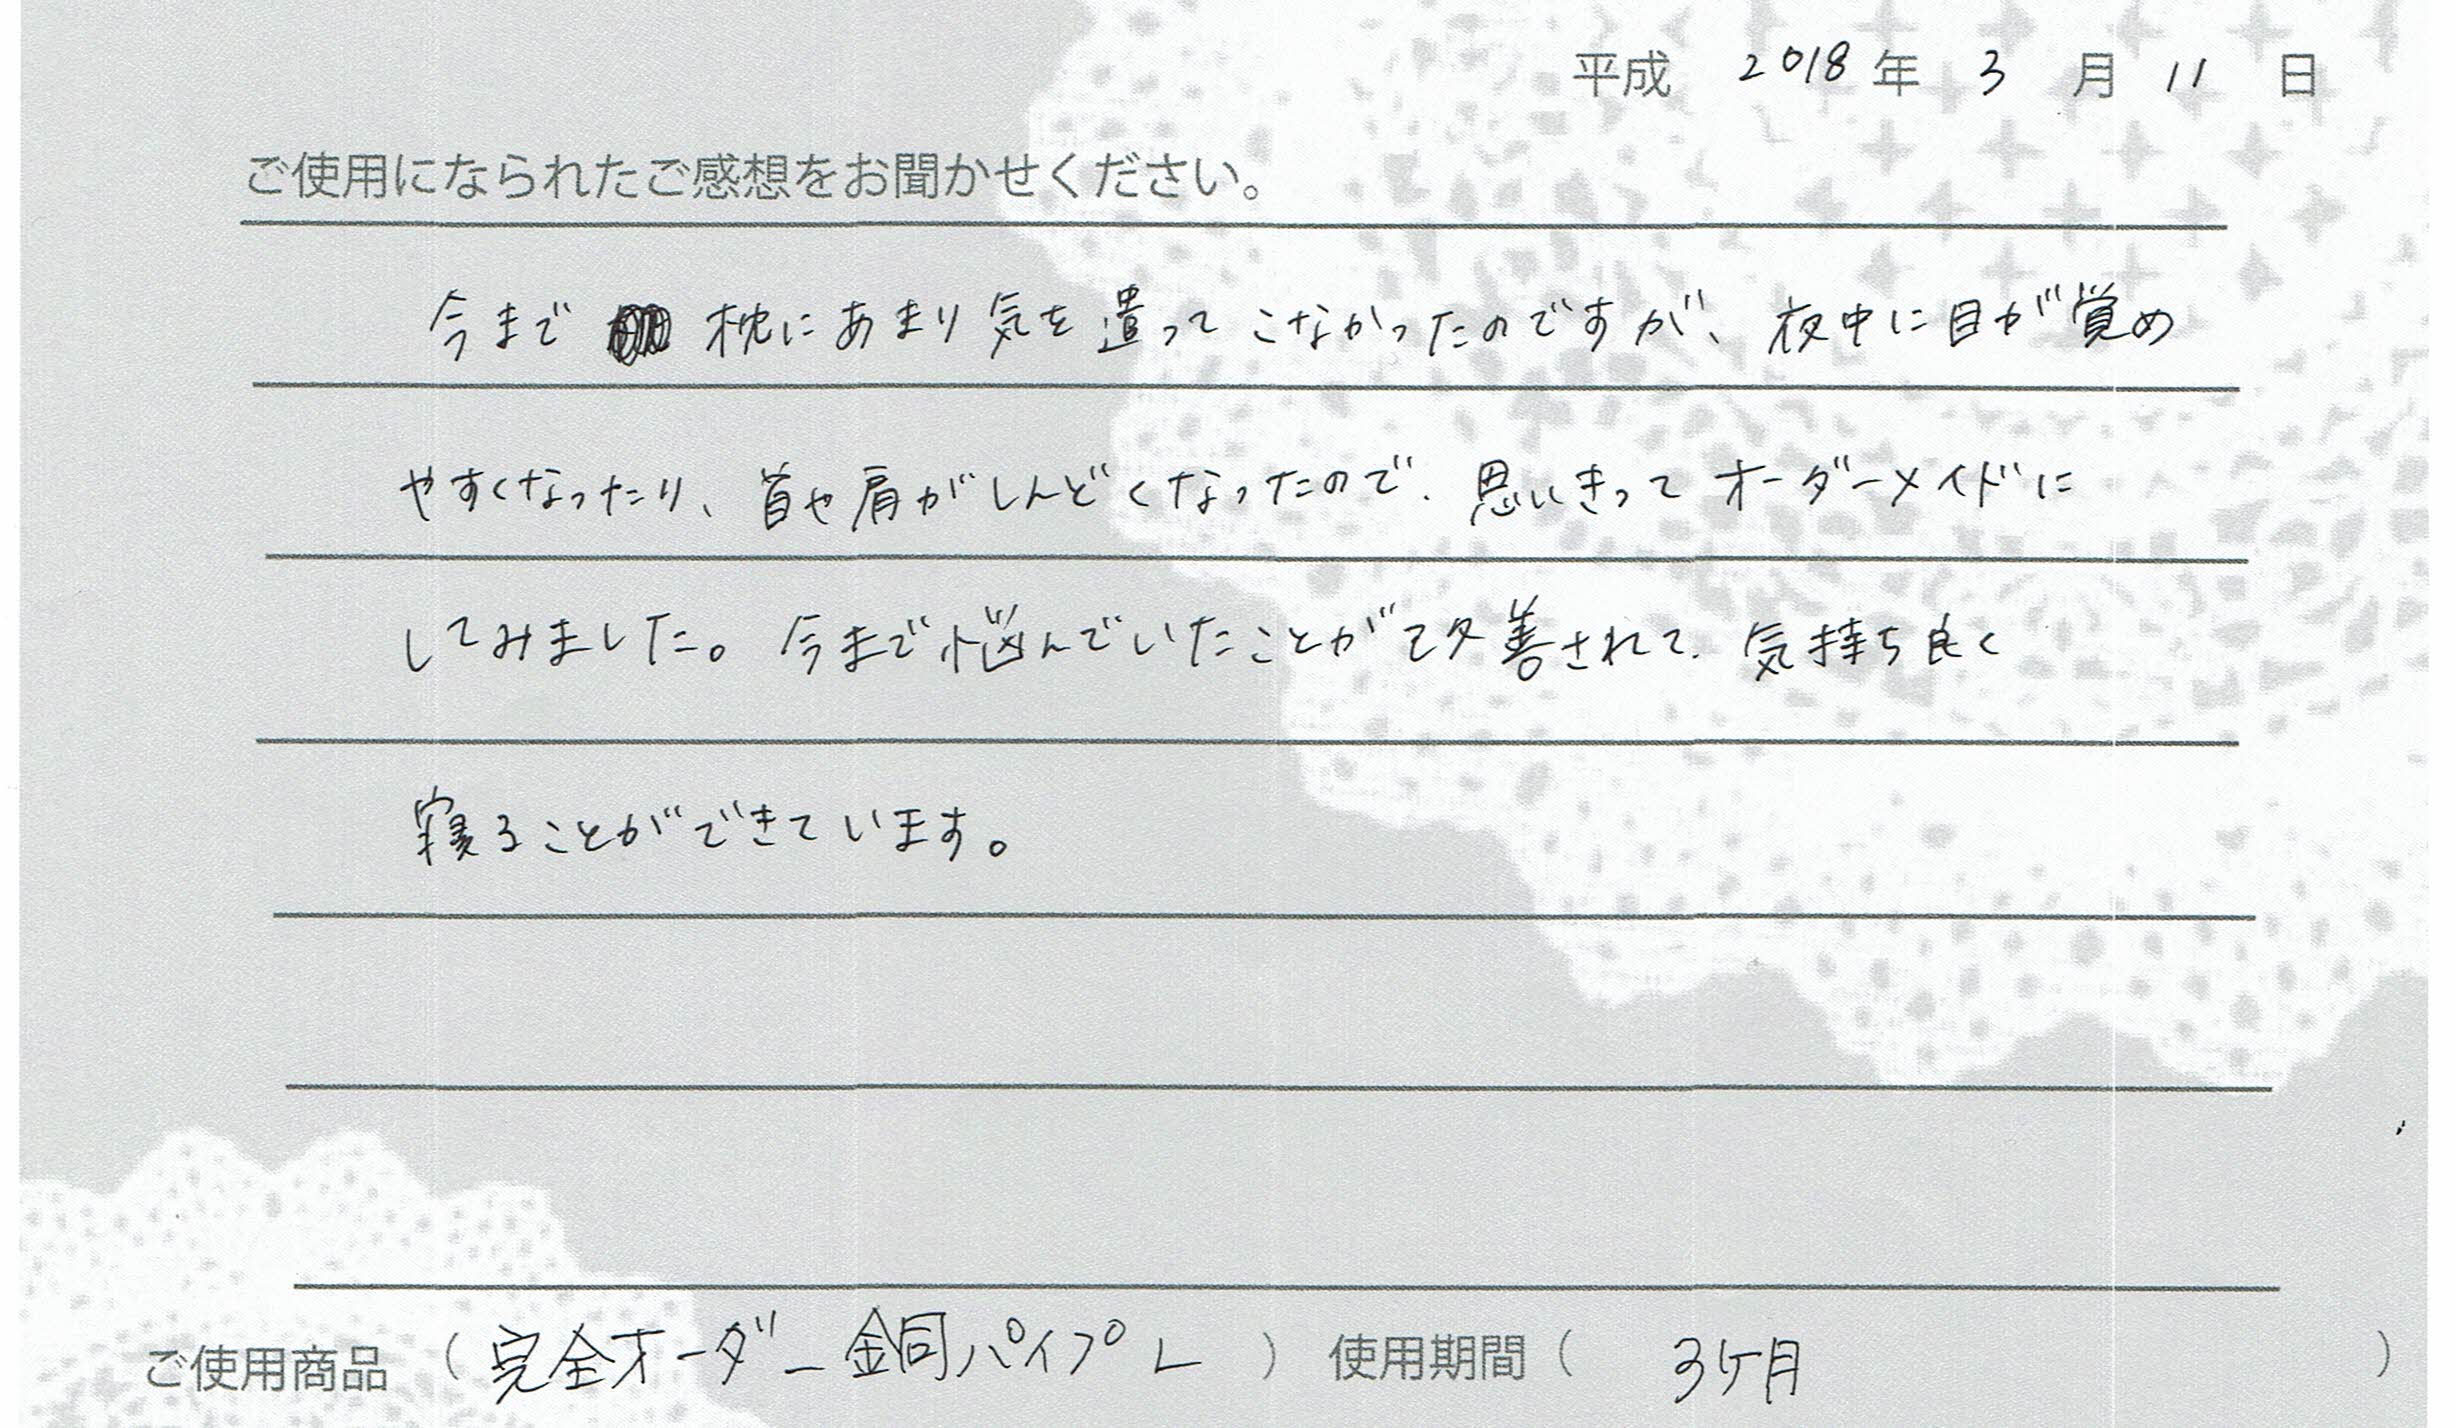 平成 2018 年 3 月 11 日
ご使用になられたご感想をお聞かせください。
今まで 枕にあまり気を遣ってこなかったのですが、夜中に目が覚め
やすくなったり、首や肩がしんどくなったので、思いきってオーダーメイドに
してみました。今まで悩んでいたことが改善されて、気持ち良く
寝ることができています。
ご使用商品 ( 完全オーダー銅パイプL ) 使用期間 ( 3ヶ月 )